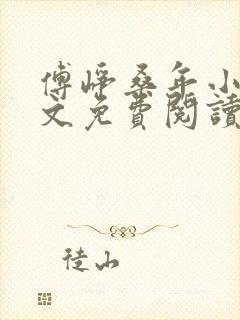 傅崢桑年小
文免費閱讀
徒山